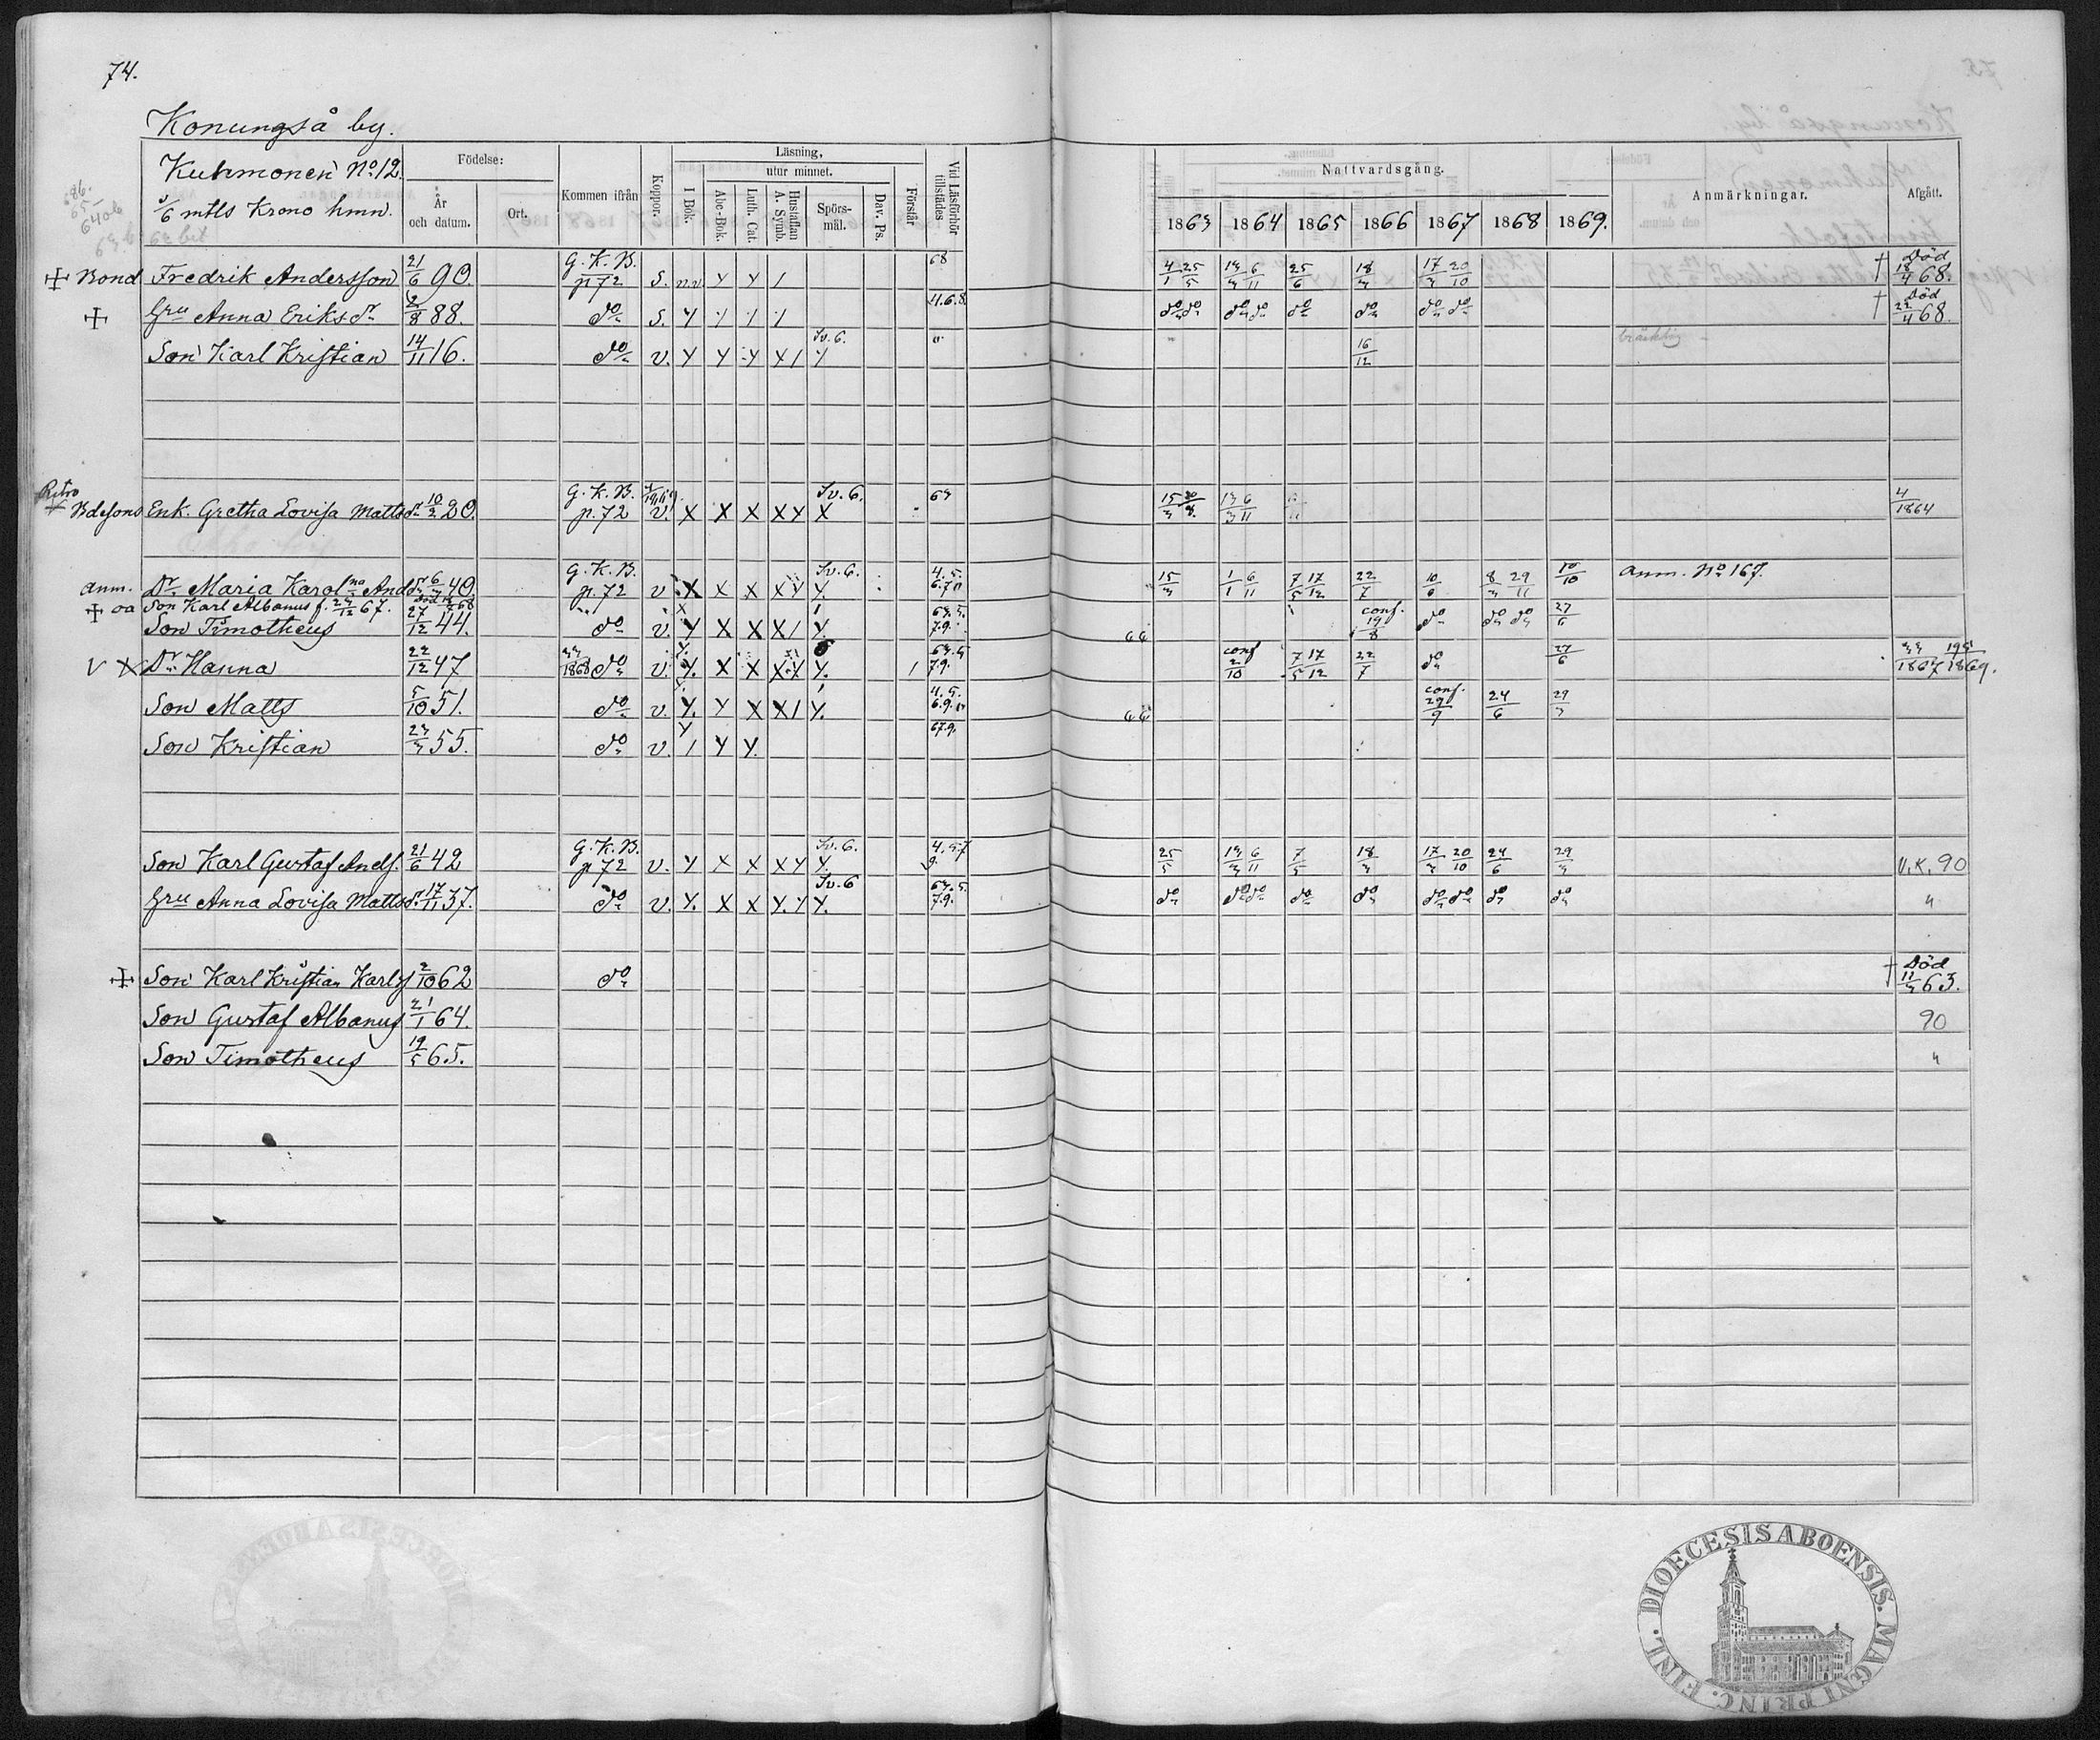 74.
Konungså by.
Kuhmonen No 12.
1/6 mtls Krono hmn.
Födelse:
År och datum.
Ort.
Kommen ifrån
Koppor.
Läsning,
I Bok.
utur minnet.
Abc-Bok.
Luth. Cat.
Hustaflan A. Symb.
Spörs-mål.
Dav. Ps.
Förstår
Vid Läsförhör tillstädes
Nattvardsgång.
1863 1864 1865 1866 1867 1868 1869.
Anmärkningar.
Afgått.
Bond Fredrik Andersson 21/6 90. G. K. B. p 72 S. v.v. Y Y / 68 4/1 25/5 13/3 6/11 25/6 18/3 17/3 20/10 † Död 18/4 68.
Hru Anna Eriksdr 2/8 88. do S. Y / / / 4.6.8 do do do do do do do do † Död 22/4 68.
Son Karl Kristian 14/11 16. do v. Y Y Y X / Y Sv. 6. 16/12 bräcklig
Retro
Bdesons Enk. Gretha Lovisa Mattsdr 10/2 20. G. K. B. p. 72 v. X X X X Y X Sv. 6. 63 15/3 13/3 6/11 4/1864
anm. Dr Maria Karolna Andsdr 6/3 40. G. K. B. p. 72 v. X X X X Y Y. Sv. 6. 4.5. 6.7. 15/3 1/1 6/11 7/5 17/12 22/7 10/6 8/3 29/11 10/10 anm. No 167.
oa Son Karl Albanus f. 23/12 67.
Son Timotheus 27/12 44. do v. Y X X X / Y. 63.5. 7.9. conf. 19/8 do do do 27/6
V X Dr Hanna 22/12 47 33/1868 do v. Y. X X X Y Y. / 63.6 7.9. conf 2/10 7/5 17/12 22/7 do 27/6 33/1867 195/1869.
Son Matts 5/10 51. do v. Y. Y X X / Y. 4.5. 6.9. 66 conf. 29/9 24/6 29/3
Son Kristian 23/3 55. do v. / Y Y. 67.9.
Son Karl Gustaf Ands. 21/6 42 G. K. B. p 72 v. Y X X X Y Y. Sv. 6. 4.5.7 9. 25/5 13/3 6/11 7/5 18/3 17/3 20/10 24/6 29/3 U.K. 90
Hru Anna Lovisa Mattsdr 17/11 37. do v. Y. X X Y. Y Y. Sv. 6 63.5. 7.9. do do do do do do do do do "
Son Karl Kristian Karls 2/10 62 do † Död 11/3 63.
Son Gustaf Albanus 21/1 64. 90
Son Timotheus 19/5 65. "
DIOECESIS ABOENSIS. MAGNI PRINC. FINL.